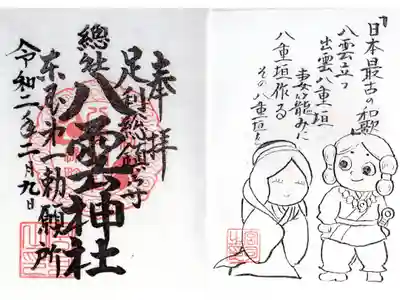 奉拝
足利総鎮守
總社八雲神社
東国第一勅願所
令和二年二月九日
日本最古の和歌
八雲立つ
出雲八重垣
妻籠みに
八重垣作る
その八重垣を